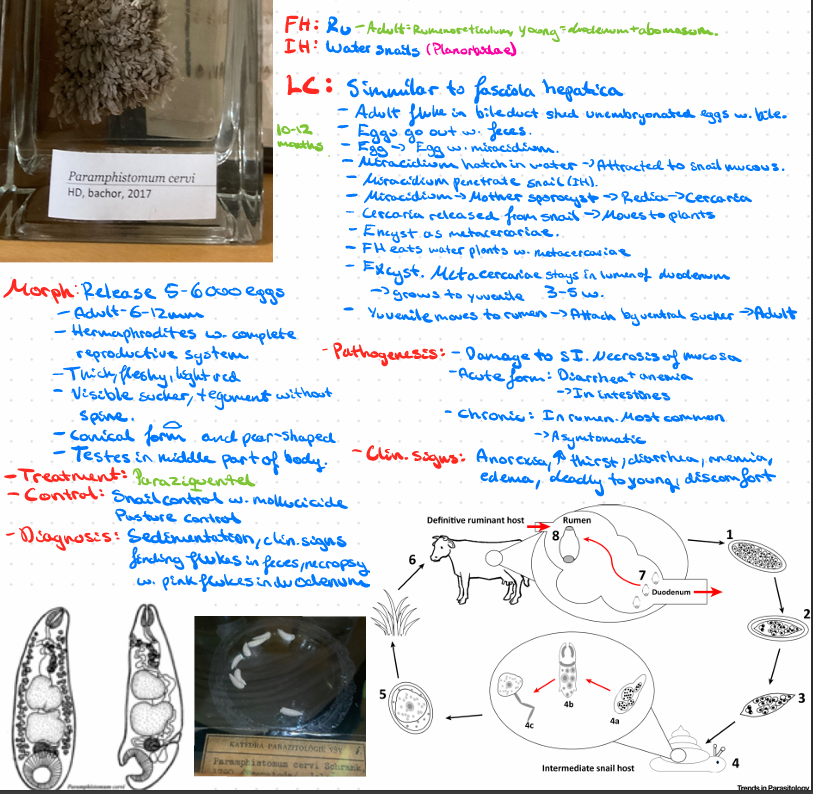 FH: Ru - Adult=Ruminoreticulum, young=duodenum+abomasum.
IH: Water snails (Planorbidae)
LC: Simmilar to fasciola hepatica
10-12 months
- Adult fluke in bileduct shed unembryonated eggs w. bile.
- Eggs go out w. feces.
- Egg → Egg w. miracidium.
- Miracidium hatch in water → Attracted to snail mucous.
- Miracidium penetrate snail (IH).
- Miracidium → Mother sporocyst → Redia → Cercaria
- Cercaria released from snail → Moves to plants
- Encyst as metacercariae.
- FH eats water plants w. metacercariae
- Excyst. Metacercariae stays in lumen of duodenum
→ grows to yuvenile 3-5 w.
- Yuvenile moves to rumen → Attach by ventral sucker → Adult
Paramphistomum cervi
HD, bachor, 2017
Morph: Release 5-6000 eggs
- Adult-6-12mm
- Hermaphrodites w. complete
reproductive system
- Thick, fleshy, light red
- Visible sucker, tegument without
spine.
- Conical form and pear-shaped
- Testes in middle part of body.
- Treatment: Paraziquentel
- Control: Snail control w. mollucicide
Pasture control
- Diagnosis: Sedimentation, clin. signs
finding flukes in feces, necropsy
w. pink flukes in duodenum
- Pathogenesis: - Damage to SI. Necrosis of mucosa
- Acute form: Diarrhea + anemia
→ In intestines
- Chronic: In rumen. Most common
→ Asymtomatic
- Clin. signs: Anorexia, ↑ thirst, diarrhea, anemia,
edema, deadly to young, discomfort
Definitive ruminant host
Rumen
8
7
Duodenum
1
2
3
4
4a
4b
4c
5
6
Intermediate snail host
Trends in Parasitology
Paramphistomum cervi
KATEDRA PARAZITOLÓGIE VŠV
Paramphistomum cervi Schrank,